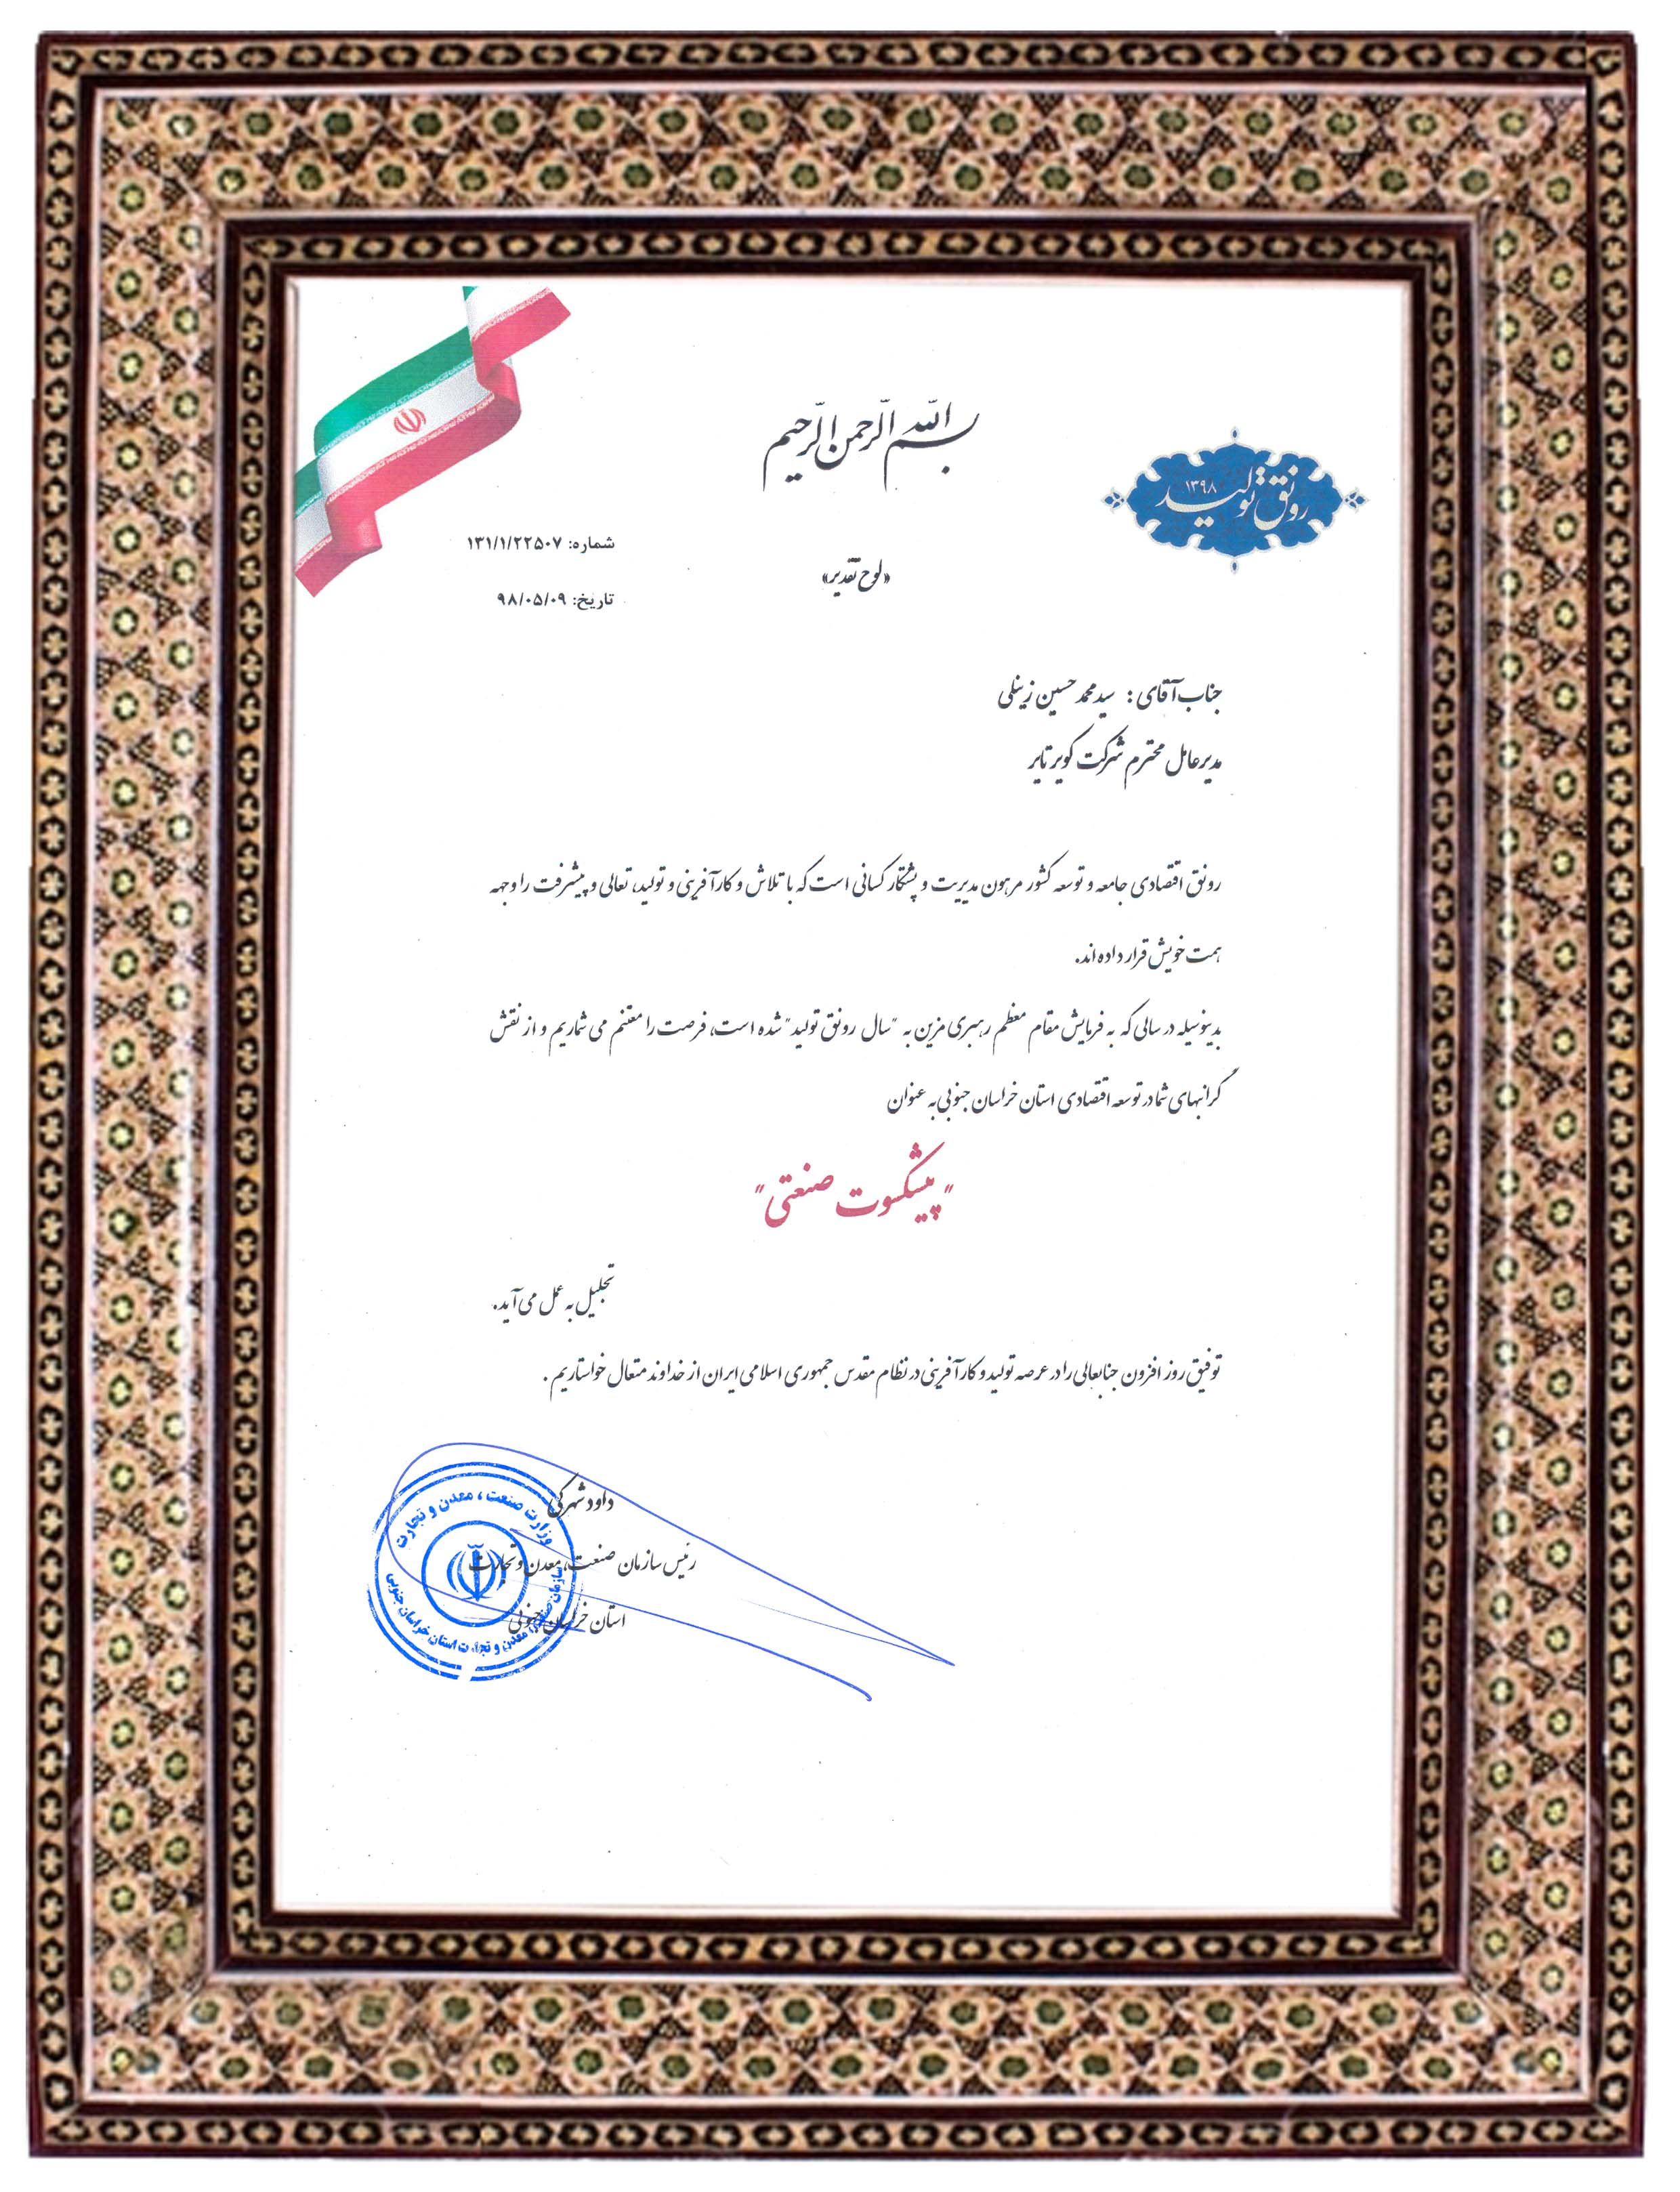 بسم الله الرحمن الرحیم
رونق تولید
۱۳۹۸
شماره: ۱۳۱/۱/۲۲۵۰۷
«لوح تقدیر»
تاریخ: ۹۸/۰۵/۰۹
جناب آقای : سید محمد حسین زینلی
مدیرعامل محترم شرکت کویر تایر
رونق اقتصادی جامعه و توسعه کشور مرهون مدیریت و پشتکار کسانی است که با تلاش و کارآفرینی و تولید، تعالی و پیشرفت را وجهه
همت خویش قرار داده اند.
بدینوسیله در سالی که به فرمایش مقام معظم رهبری مزین به "سال رونق تولید" شده است، فرصت را مغتنم می شماریم و از نقش
گرانبهای شما در توسعه اقتصادی استان خراسان جنوبی به عنوان
"پیشکسوت صنعتی"
تجلیل به عمل می آید.
توفیق روز افزون جنابعالی را در عرصه تولید و کارآفرینی در نظام مقدس جمهوری اسلامی ایران از خداوند متعال خواستاریم .
داود شهرکی
رئیس سازمان صنعت، معدن و تجارت
استان خراسان جنوبی
وزارت صنعت ، معدن و تجارت
سازمان صنعت، معدن و تجارت استان خراسان جنوبی